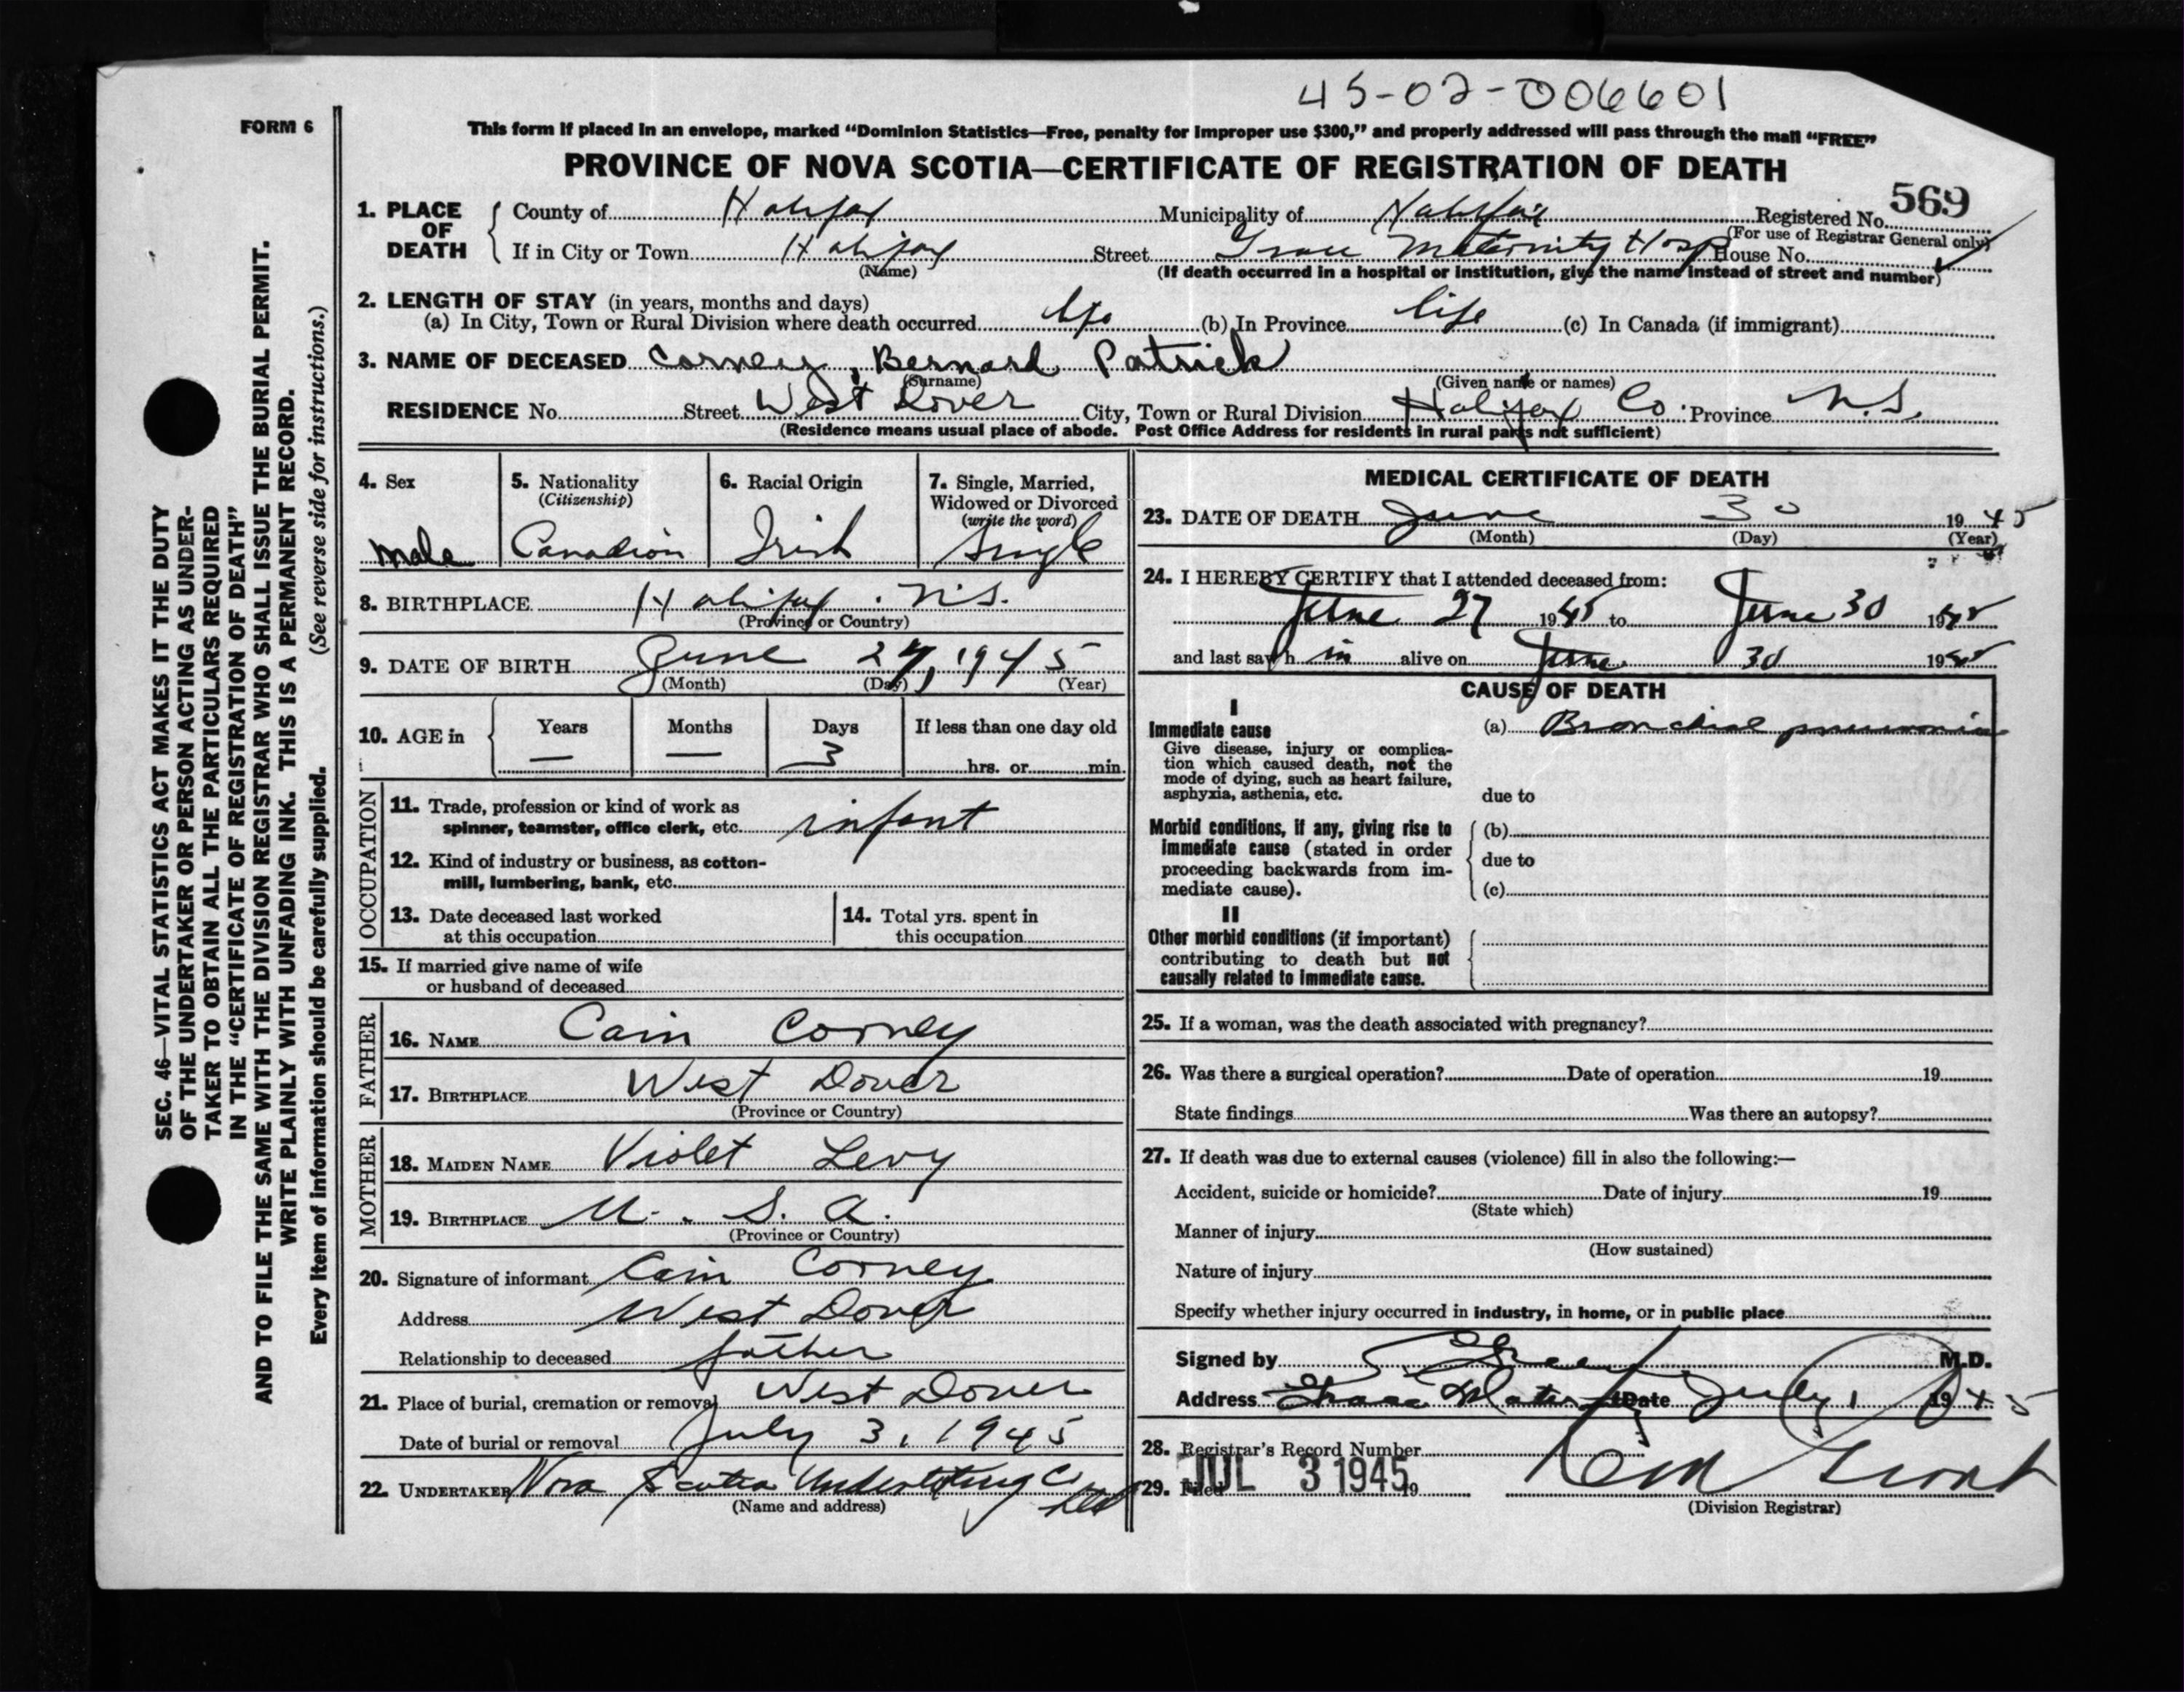 45-02-006601
FORM 6
This form if placed in an envelope, marked "Dominion Statistics—Free, penalty for improper use $300," and properly addressed will pass through the mail "FREE"
PROVINCE OF NOVA SCOTIA—CERTIFICATE OF REGISTRATION OF DEATH
1. PLACE OF DEATH County of Halifax Municipality of Halifax Registered No. 569
(For use of Registrar General only)
If in City or Town Halifax Street Grace Maternity Hosp House No.
(Name) (If death occurred in a hospital or institution, give the name instead of street and number)
2. LENGTH OF STAY (in years, months and days)
(a) In City, Town or Rural Division where death occurred life (b) In Province life (c) In Canada (if immigrant)
3. NAME OF DECEASED Corney, Bernard Patrick
(Surname) (Given name or names)
RESIDENCE No. Street West Dover City, Town or Rural Division Halifax Co. Province N.S.
(Residence means usual place of abode. Post Office Address for residents in rural parts not sufficient)
4. Sex
Male
5. Nationality
(Citizenship)
Canadian
6. Racial Origin
Irish
7. Single, Married,
Widowed or Divorced
(write the word)
Single
8. BIRTHPLACE Halifax. N.S.
(Province or Country)
9. DATE OF BIRTH June 27, 1945
(Month) (Day) (Year)
10. AGE in Years Months Days If less than one day old
— — 3 hrs. or min.
OCCUPATION
11. Trade, profession or kind of work as
spinner, teamster, office clerk, etc. infant
12. Kind of industry or business, as cotton-
mill, lumbering, bank, etc.
13. Date deceased last worked
at this occupation
14. Total yrs. spent in
this occupation
15. If married give name of wife
or husband of deceased
FATHER
16. NAME Cain Corney
17. BIRTHPLACE West Dover
(Province or Country)
MOTHER
18. MAIDEN NAME Violet Levy
19. BIRTHPLACE U. S. A.
(Province or Country)
20. Signature of informant Cain Corney
Address West Dover
Relationship to deceased father
21. Place of burial, cremation or removal West Dover
Date of burial or removal July 3, 1945
22. UNDERTAKER Nova Scotia Undertaking Co Ltd
(Name and address)
MEDICAL CERTIFICATE OF DEATH
23. DATE OF DEATH June 30 1945
(Month) (Day) (Year)
24. I HEREBY CERTIFY that I attended deceased from:
June 27 1945 to June 30 1945
and last saw h im alive on June 30 1945
CAUSE OF DEATH
I
Immediate cause
Give disease, injury or complica-
tion which caused death, not the
mode of dying, such as heart failure,
asphyxia, asthenia, etc.
(a) Bronchial pneumonia
due to
Morbid conditions, if any, giving rise to
immediate cause (stated in order
proceeding backwards from im-
mediate cause).
(b)
due to
(c)
II
Other morbid conditions (if important)
contributing to death but not
causally related to immediate cause.
25. If a woman, was the death associated with pregnancy?
26. Was there a surgical operation? Date of operation 19
State findings Was there an autopsy?
27. If death was due to external causes (violence) fill in also the following:—
Accident, suicide or homicide? Date of injury 19
(State which)
Manner of injury
(How sustained)
Nature of injury
Specify whether injury occurred in industry, in home, or in public place
Signed by M.D.
Address Grace Date July 1 1945
28. Registrar's Record Number
29. Filed JUL 3 1945 19
(Division Registrar)
SEC. 46—VITAL STATISTICS ACT MAKES IT THE DUTY
OF THE UNDERTAKER OR PERSON ACTING AS UNDER-
TAKER TO OBTAIN ALL THE PARTICULARS REQUIRED
IN THE "CERTIFICATE OF REGISTRATION OF DEATH"
AND TO FILE THE SAME WITH THE DIVISION REGISTRAR WHO SHALL ISSUE THE BURIAL PERMIT.
WRITE PLAINLY WITH UNFADING INK. THIS IS A PERMANENT RECORD.
Every item of information should be carefully supplied. (See reverse side for instructions.)